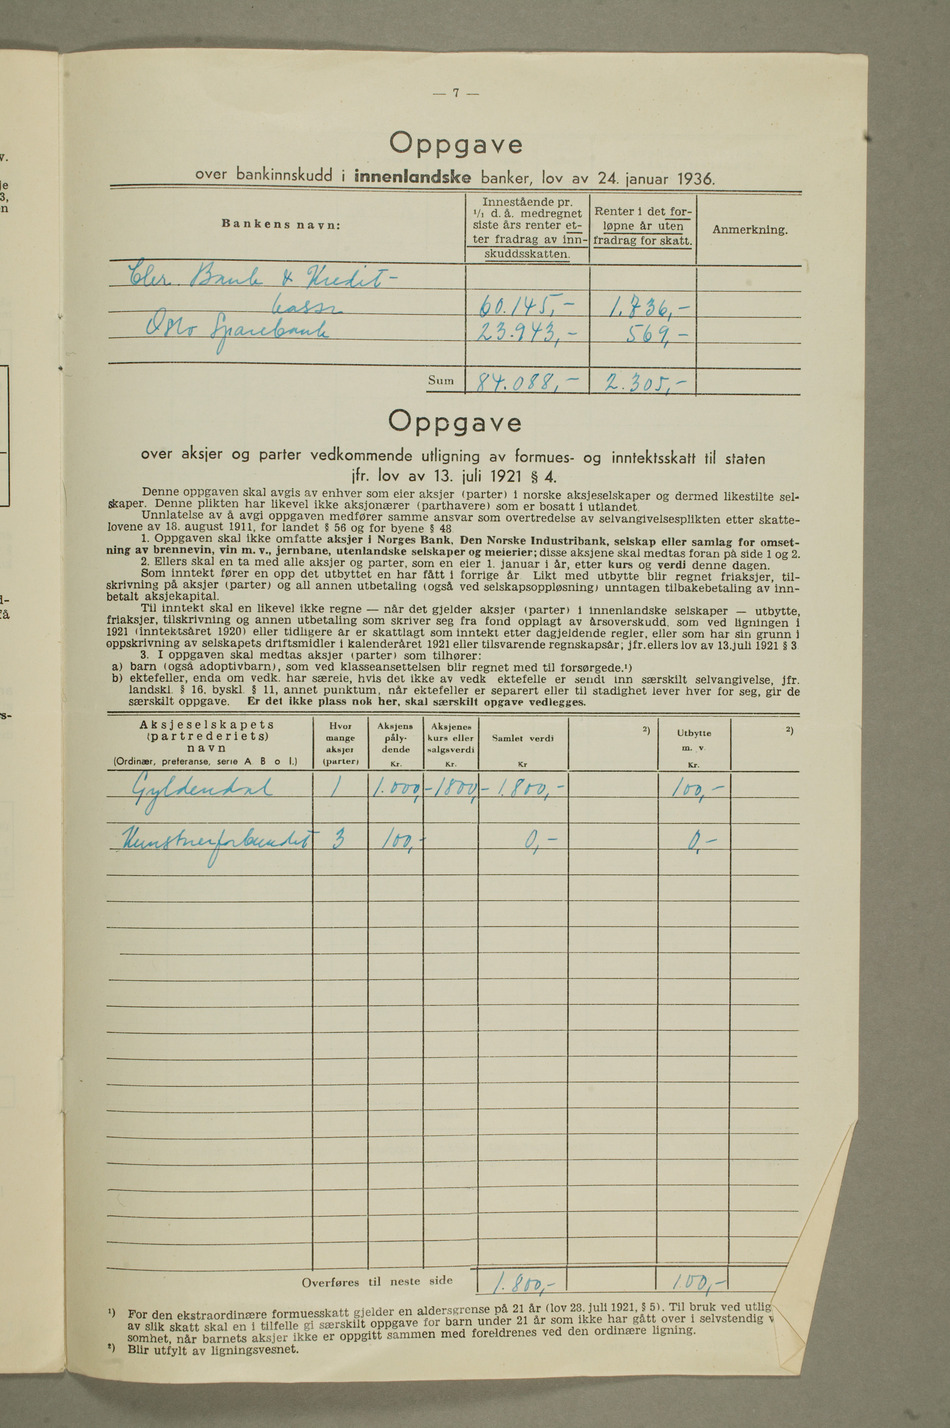 — 7 —
Oppgave
over bankinnskudd i innenlandske banker, lov av 24. januar 1936.
Bankens navn:
Innestående pr.
1/1 d. å. medregnet
siste års renter et-
ter fradrag av inn-
skuddsskatten.
Renter i det for-
løpne år uten
fradrag for skatt.
Anmerkning.
Bank & Kredit-
kassa 60.145,- 1.736,-
Oslo Sparebank 23.943,- 569,-
Sum 84.088,- 2.305,-
Oppgave
over aksjer og parter vedkommende utligning av formues- og inntektsskatt til staten
jfr. lov av 13. juli 1921 § 4.
Denne oppgaven skal avgis av enhver som eier aksjer (parter) i norske aksjeselskaper og dermed likestilte sel-
skaper. Denne plikten har likevel ikke aksjonærer (parthavere) som er bosatt i utlandet.
Unnlatelse av å avgi oppgaven medfører samme ansvar som overtredelse av selvangivelsesplikten etter skatte-
lovene av 18. august 1911, for landet § 56 og for byene § 48
1. Oppgaven skal ikke omfatte aksjer i Norges Bank, Den Norske Industribank, selskap eller samlag for omset-
ning av brennevin, vin m. v., jernbane, utenlandske selskaper og meierier; disse aksjene skal medtas foran på side 1 og 2.
2. Ellers skal en ta med alle aksjer og parter, som en eier 1. januar i år, etter kurs og verdi denne dagen.
Som inntekt fører en opp det utbyttet en har fått i forrige år. Likt med utbytte blir regnet friaksjer, til-
skrivning på aksjer (parter) og all annen utbetaling (også ved selskapsoppløsning) unntagen tilbakebetaling av inn-
betalt aksjekapital.
Til inntekt skal en likevel ikke regne — når det gjelder aksjer (parter) i innenlandske selskaper — utbytte,
friaksjer, tilskrivning og annen utbetaling som skriver seg fra fond opplagt av årsoverskudd, som ved ligningen i
1921 (inntektsåret 1920) eller tidligere år er skattlagt som inntekt etter dagjeldende regler, eller som har sin grunn i
oppskrivning av selskapets driftsmidler i kalenderåret 1921 eller tilsvarende regnskapsår; jfr. ellers lov av 13. juli 1921 § 3
3. I oppgaven skal medtas aksjer (parter) som tilhører:
a) barn (også adoptivbarn), som ved klasseansettelsen blir regnet med til forsørgede.¹)
b) ektefeller, enda om vedk. har særeie, hvis det ikke av vedk ektefelle er sendt inn særskilt selvangivelse, jfr.
landskl. § 16, byskl § 11, annet punktum, når ektefeller er separert eller til stadighet lever hver for seg, gir de
særskilt oppgave. Er det ikke plass nok her, skal særskilt opgave vedlegges.
Aksjeselskapets
(partrederiets)
navn
(Ordinær, preferanse, serie A B o l.)
Hvor
mange
aksjer
(parter)
Aksjens
påly-
dende
Kr.
Aksjenes
kurs eller
salgsverdi
Kr.
Samlet verdi
Kr
²)
Utbytte
m. v.
Kr.
²)
Gyldendal 1 1.000,- 1800,- 1.800,- 100,-
Kunstnerforbundet 3 100,- 0,- 0,-
Overføres til neste side 1.800,- 100,-
¹) For den ekstraordinære formuesskatt gjelder en aldersgrense på 21 år (lov 28. juli 1921, § 5). Til bruk ved utlig
av slik skatt skal en i tilfelle gi særskilt oppgave for barn under 21 år som ikke har gått over i selvstendig v
somhet, når barnets aksjer ikke er oppgitt sammen med foreldrenes ved den ordinære ligning.
²) Blir utfylt av ligningsvesnet.